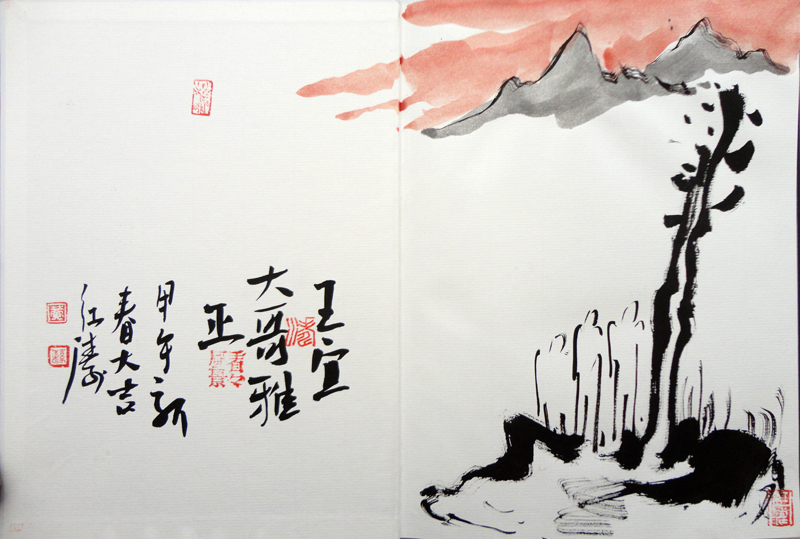 王宜
大哥雅
正
甲午新
春大吉
红涛